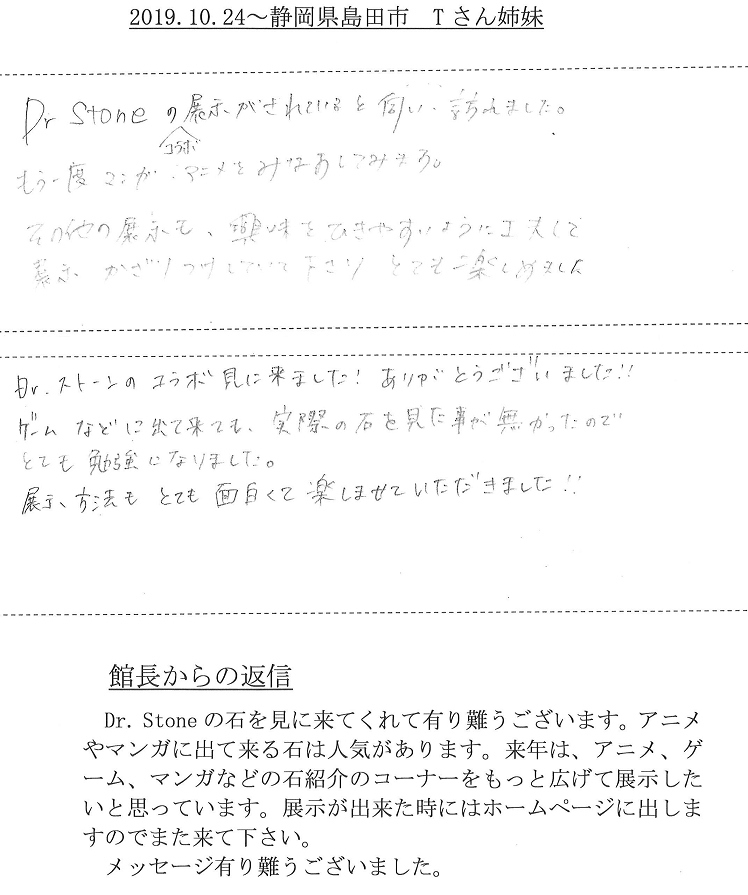 2019.10.24～静岡県島田市　Tさん姉妹
Dr Stone の展示がされていると伺い、訪れました。
コラボ
もう一度 マンガ、アニメを みなおしてみます。
その他の展示も、興味をひきやすいように工夫して
展示 かざりつけしていて下さり とても楽しめました
Dr.ストーンのコラボ見に来ました! ありがとうございました!!
ゲームなどに出て来ても、実際の石を見た事が無かったので
とても勉強になりました。
展示、方法も とても面白くて楽しませていただきました!!
館長からの返信
Dr. Stoneの石を見に来てくれて有り難うございます。アニメ
やマンガに出て来る石は人気があります。来年は、アニメ、ゲ
ーム、マンガなどの石紹介のコーナーをもっと広げて展示した
いと思っています。展示が出来た時にはホームページに出しま
すのでまた来て下さい。
メッセージ有り難うございました。